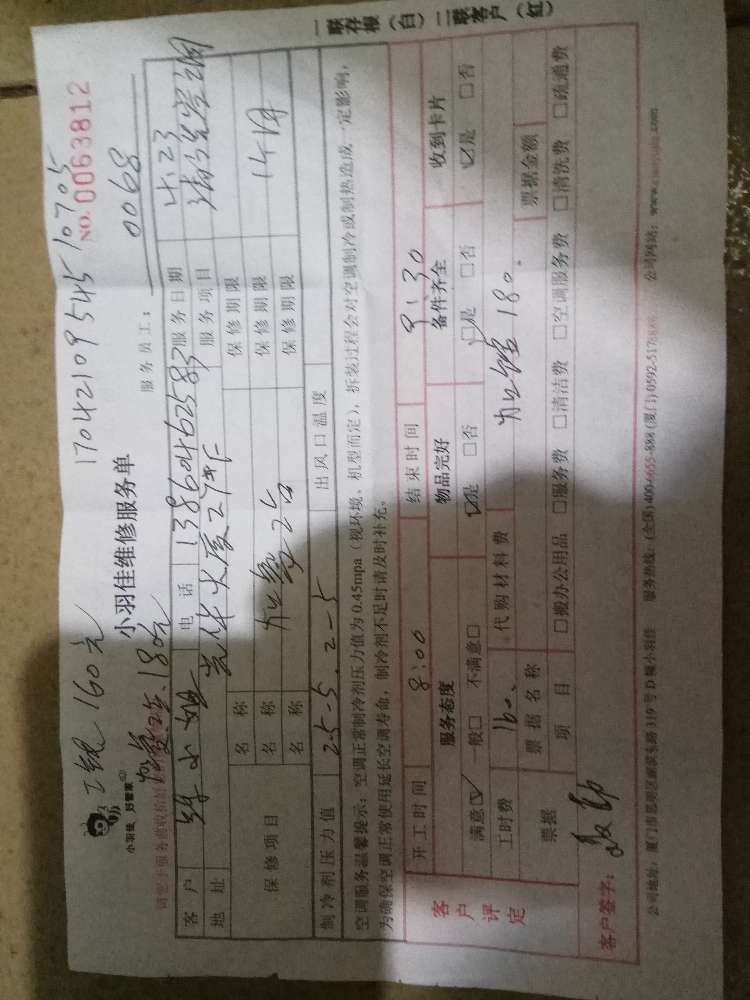 工钱160元
17042109545 10705
小羽佳 好管家
小羽佳维修服务单
NO. 0063812
加氟2台、180元
服务员工： 0068
客户 小姐 电话 13860462583 服务日期 4.23
地址 光华大厦27#F 服务项目 清洗空调
保修项目
名称 保修期限
名称 加氟2台 保修期限 1个月
名称 保修期限
制冷剂压力值 25-5.2-5 出风口温度
空调服务温馨提示：空调正常制冷剂压力值为0.45mpa（视环境、机型而定），拆装过程会对空调制冷或制热造成一定影响，
为确保空调正常使用延长空调寿命，制冷剂不足时请及时补充。
客户评定
开工时间 8:00 结束时间 9:30
服务态度 物品完好 备件齐全 收到卡片
满意☑ 一般□ 不满意□ ☑是 □否 ☑是 □否 ☑是 □否
工时费 160. 代购材料费 加氟180.
票据 票据名称 票据金额
项目 □搬办公用品 □服务费 □清洁费 □空调服务费 □清洗费 □疏通费
客户签字：
公司地址：厦门市思明区 319号D幢小羽佳 服务热线：(全国)400-6655-888 (厦门)0592-517 公司网站：www.
一联存根（白） 二联客户（红）